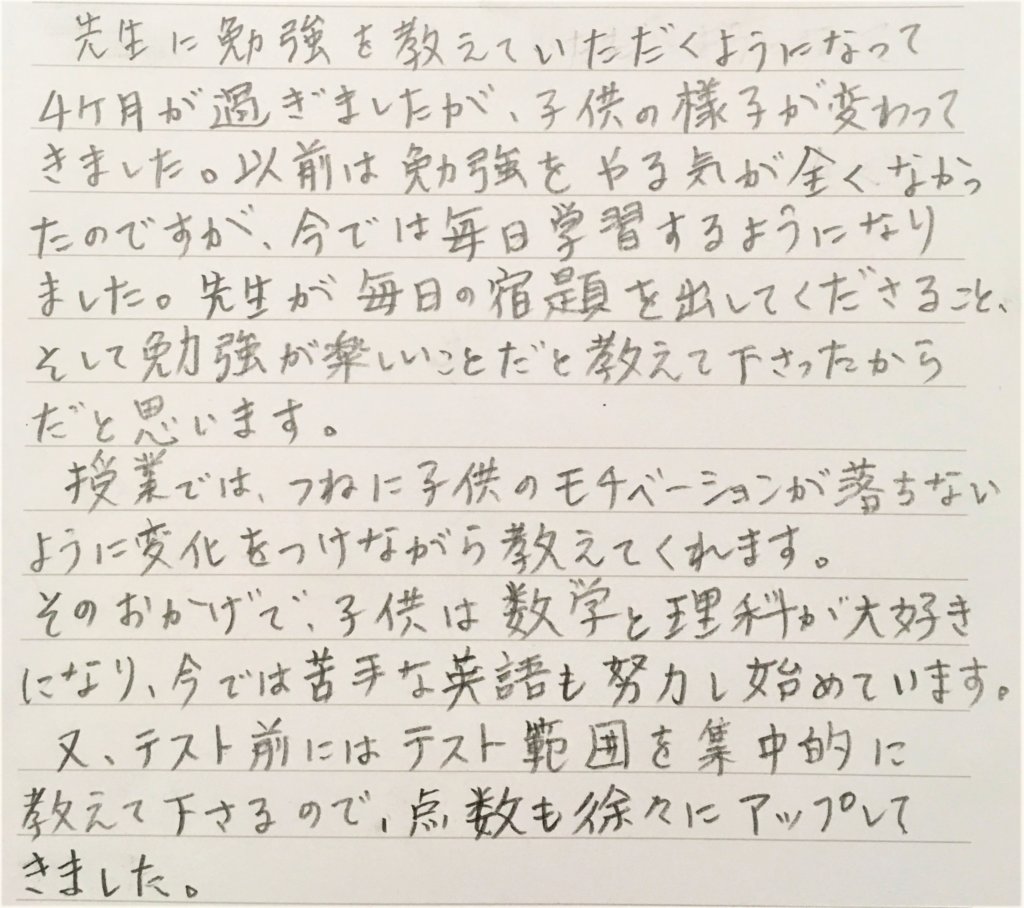 先生に勉強を教えていただくようになって
4ケ月が過ぎましたが、子供の様子が変わって
きました。以前は勉強をやる気が全くなかっ
たのですが、今では毎日学習するようになり
ました。先生が毎日の宿題を出してくださること、
そして勉強が楽しいことだと教えて下さったから
だと思います。
授業では、つねに子供のモチベーションが落ちない
ように変化をつけながら教えてくれます。
そのおかげで、子供は数学と理科が大好き
になり、今では苦手な英語も努力し始めています。
又、テスト前にはテスト範囲を集中的に
教えて下さるので、点数も徐々にアップして
きました。